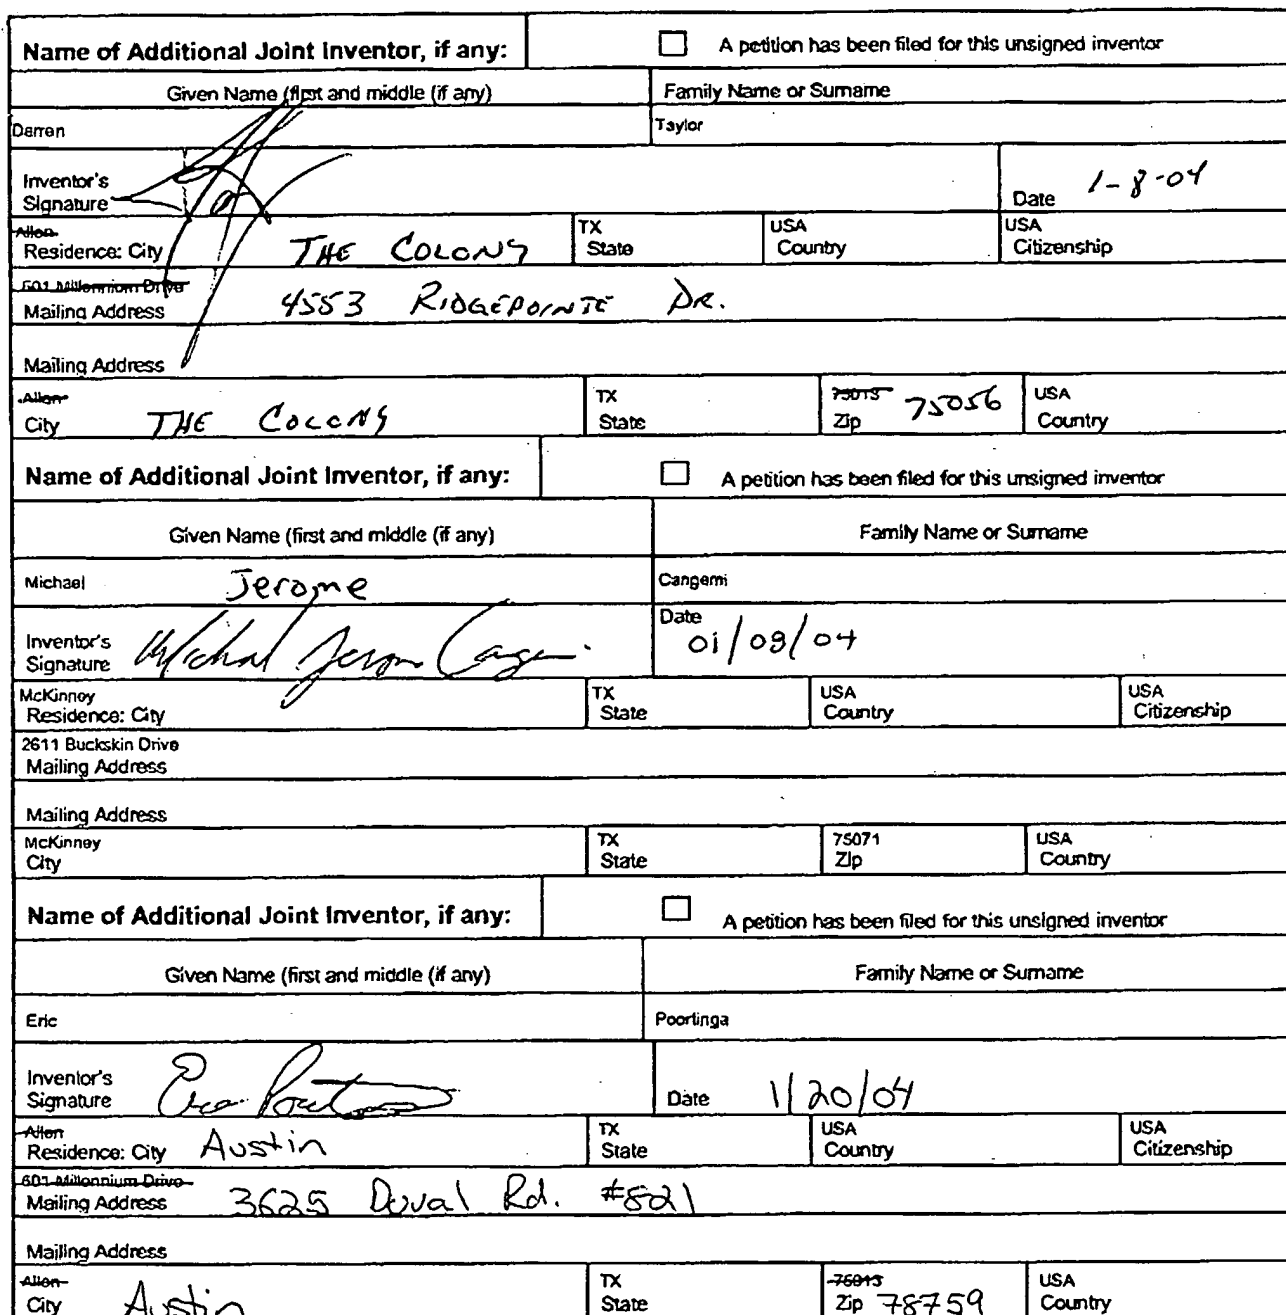 Name of Additional Joint Inventor, if any: A petition has been filed for this unsigned inventor
Given Name (first and middle (if any) Family Name or Surname
Darren Taylor
Inventor's
Signature Date 1-8-04
Allen TX USA USA
Residence: City THE COLONY State Country Citizenship
601 Millennium Drive
Mailing Address 4553 RIDGEPOINTE DR.
Mailing Address
Allen TX 75013 75056 USA
City THE COLONY State Zip Country
Name of Additional Joint Inventor, if any: A petition has been filed for this unsigned inventor
Given Name (first and middle (if any) Family Name or Surname
Michael Jerome Cangemi
Inventor's Michael Jerome Cangemi Date
Signature 01/09/04
McKinney TX USA USA
Residence: City State Country Citizenship
2611 Buckskin Drive
Mailing Address
Mailing Address
McKinney TX 75071 USA
City State Zip Country
Name of Additional Joint Inventor, if any: A petition has been filed for this unsigned inventor
Given Name (first and middle (if any) Family Name or Surname
Eric Poortinga
Inventor's
Signature Eric Poortinga Date 1/20/04
Allen TX USA USA
Residence: City Austin State Country Citizenship
601 Millennium Drive
Mailing Address 3625 Duval Rd. #821
Mailing Address
Allen TX 75013 USA
City Austin State Zip 78759 Country